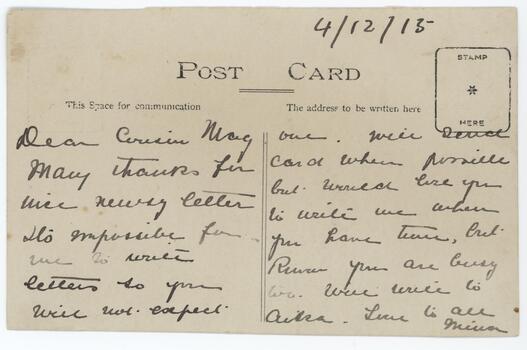 4/12/15
POST CARD
STAMP
*
HERE
This Space for communication
The address to be written here
Dear Cousin Mag
Many thanks for
nice newsy letter
Its impossible for
me to write
letters so you
will not expect
one. Will send
card when possible
but would like you
to write me when
you have time, but
Know you are busy
too. Will write to
Love to all